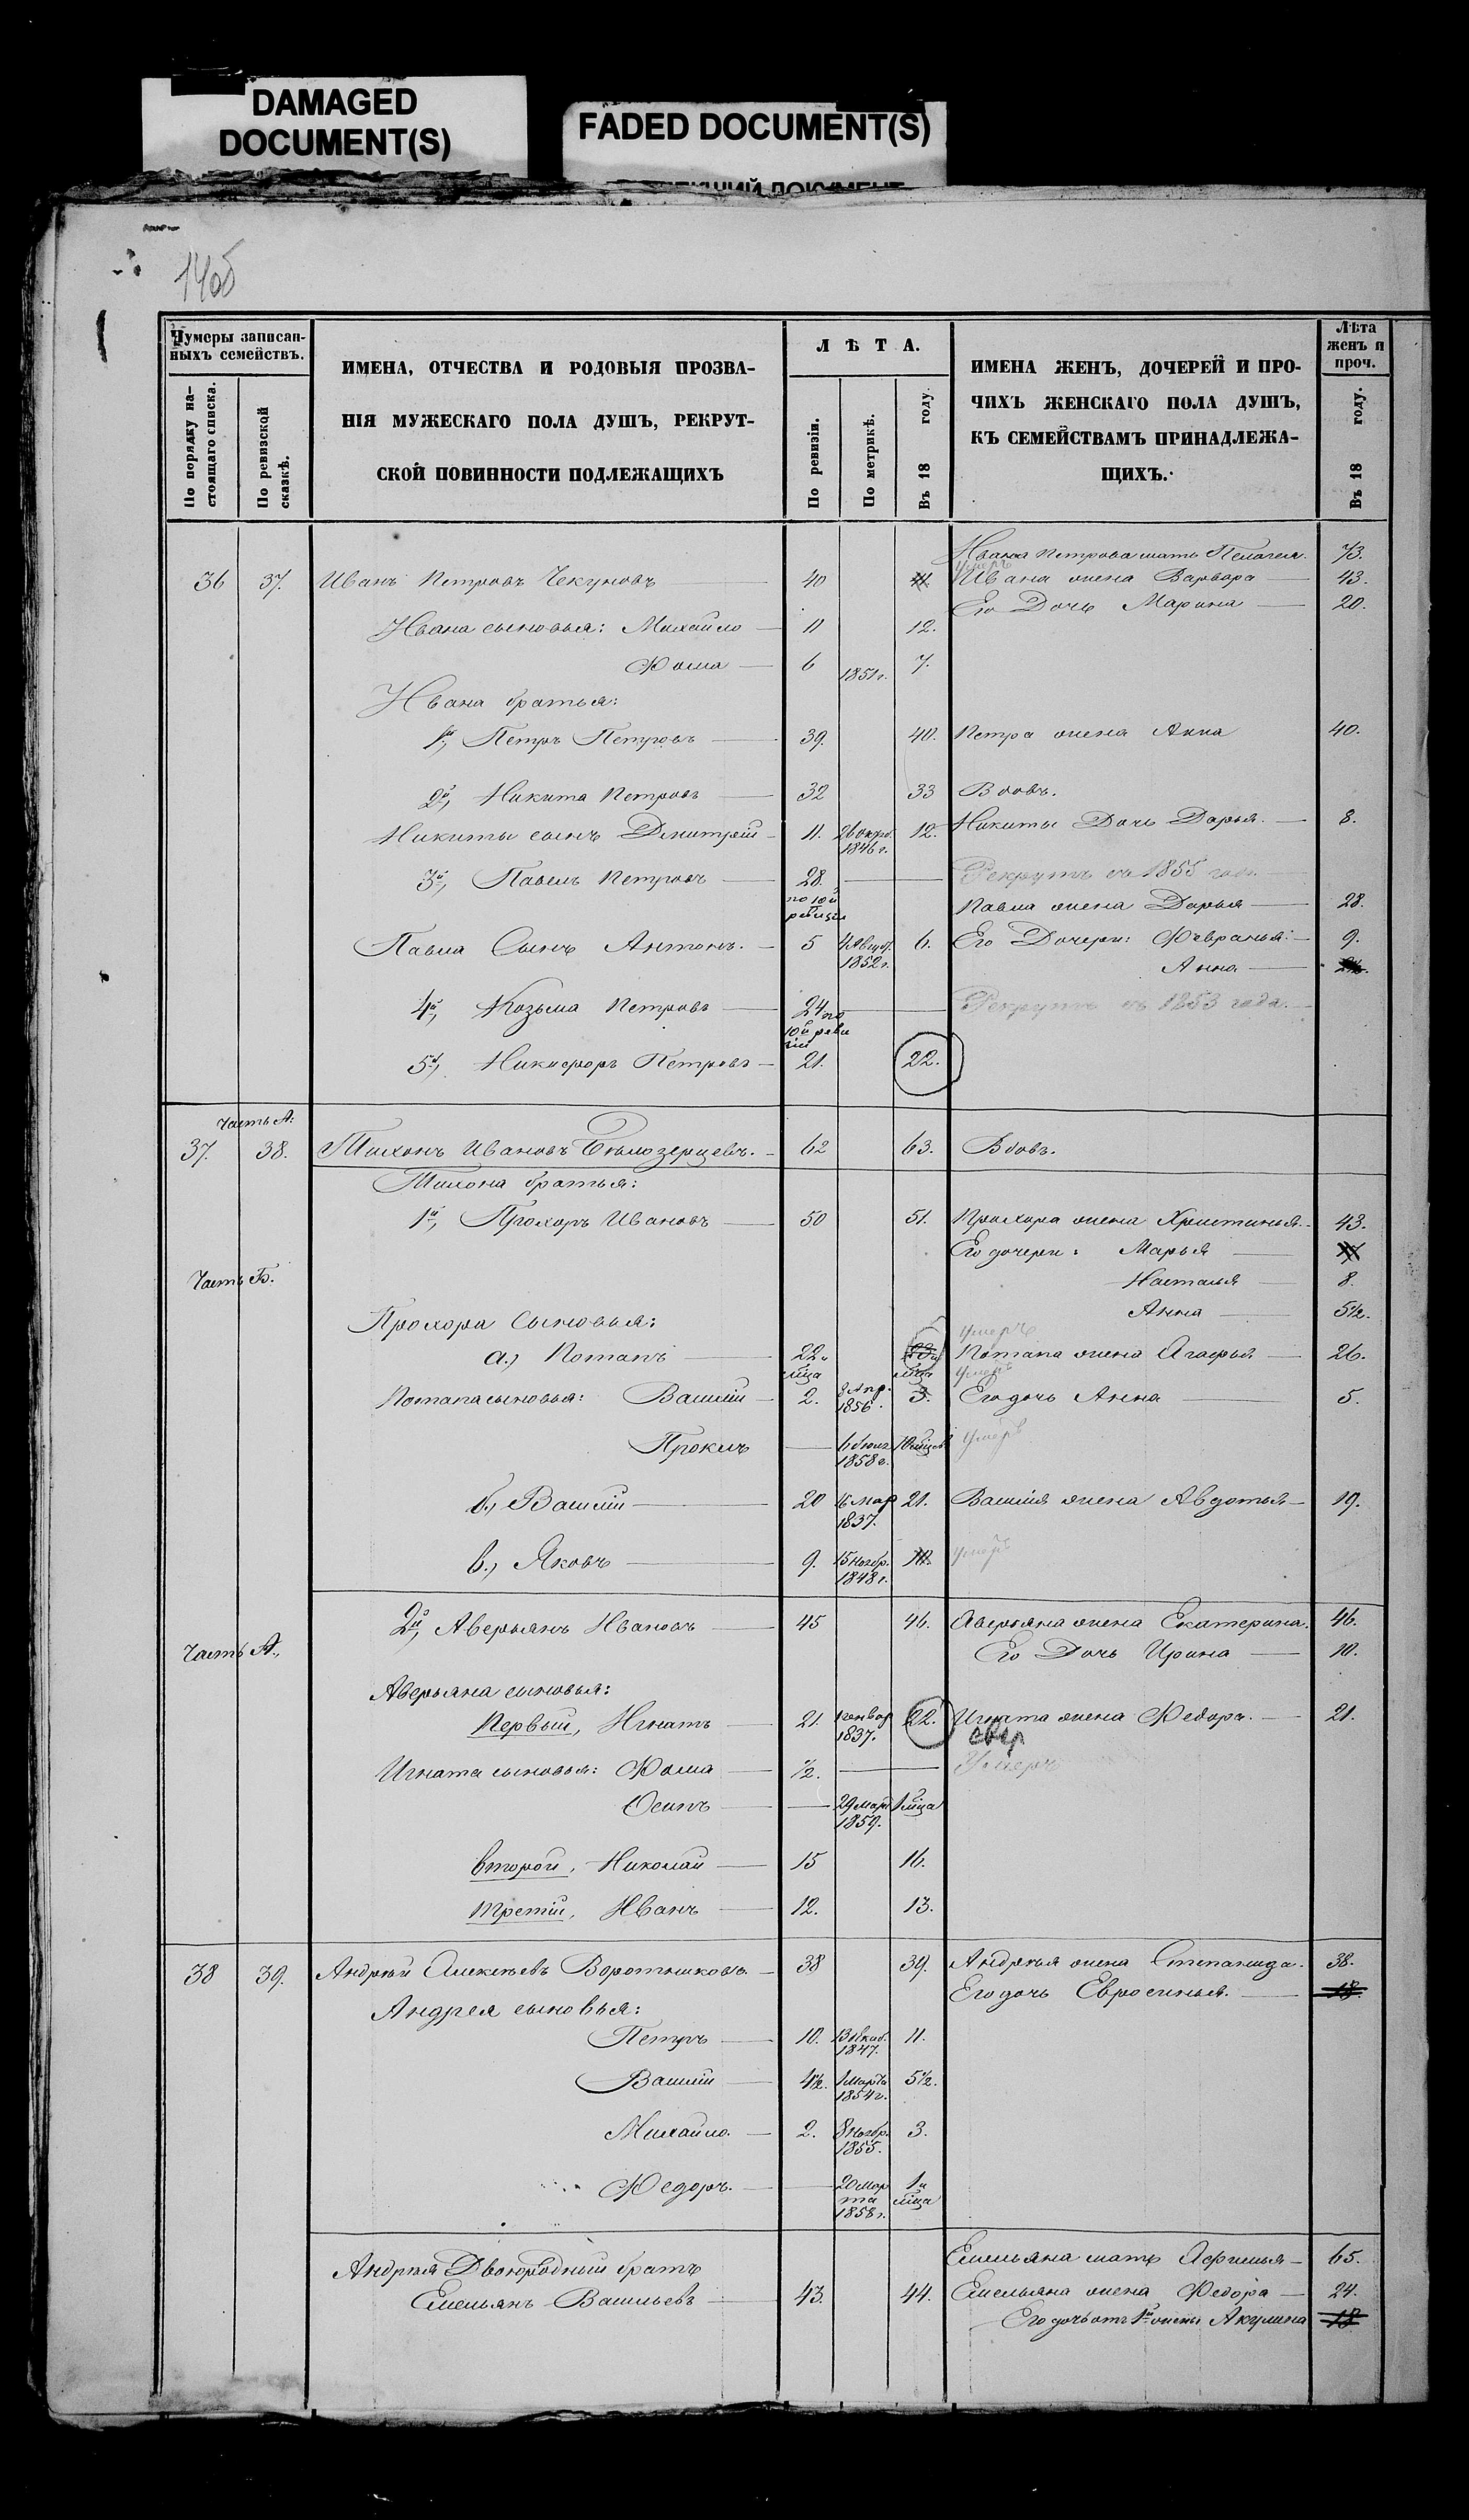 DAMAGED
DOCUMENT(S)
FADED DOCUMENT(S)
14об
Нумеры записан-
ныхъ семействъ.
По порядку на-
стоящаго списка.
По ревизской
сказкѣ.
ИМЕНА, ОТЧЕСТВА И РОДОВЫЯ ПРОЗВА-
НІЯ МУЖЕСКАГО ПОЛА ДУШЪ, РЕКРУТ-
СКОЙ ПОВИННОСТИ ПОДЛЕЖАЩИХЪ
ЛѢТА.
По ревизіи.
По метрикѣ.
Въ 18 году.
ИМЕНА ЖЕНЪ, ДОЧЕРЕЙ И ПРО-
ЧИХЪ ЖЕНСКАГО ПОЛА ДУШЪ,
КЪ СЕМЕЙСТВАМЪ ПРИНАДЛЕЖА-
ЩИХЪ.
Лѣта
женъ и
проч.
Въ 18 году.
Ивана Петрова мать Пелагея. 73.
умеръ
36 37. Иванъ Петровъ Чекуновъ 40 41. Ивана жена Варвара 43.
Его Дочь Марина 20.
Ивана сыновья: Михайло 11 12.
Фома 6 1851г. 7.
Ивана братья:
1й, Петръ Петровъ 39. 40. Петра жена Анна 40.
2й, Никита Петровъ 32 33 Вдовъ.
Никиты сынъ Дмитрій 11. 26 окт. 1846г. 12. Никиты Дочь Дарья. 8.
3й, Павелъ Петровъ 28. по 10й ревизіи Рекрутъ съ 1855 года.
Павла жена Дарья 28.
Павла Сынъ Антонъ. 5 1852г. 6. Его Дочери: Февранья: 9.
Анна
4й, Козьма Петровъ 24 по 10й ревизіи Рекрутъ съ 1853 года.
5й, Никифоръ Петровъ 21. 22.
Часть А.
37. 38. Тихонъ Ивановъ Бѣлозерцевъ. 62 63. Вдовъ.
Тихона братья:
1й, Прохоръ Ивановъ 50 51. Прохора жена Христинья. 43.
Его дочери: Марья
Часть Б. Насталья 8.
Анна 5½.
Прохора Сыновья:
умеръ
а.) Потапъ 22. 23. Потапа жена Агафья 26.
умеръ
Потапа сыновья: Василій 2. 8 Апр. 1856. 3. Его дочь Анна 5.
Прокипъ 6 Іюля 1858г. 10 мѣсяц. умеръ
б.) Василій 20 16 мар 1837. 21. Василія жена Авдотья 19.
в.) Яковъ 9. 15 ноябр. 1848г. 10. умеръ
2й, Аверьянъ Ивановъ 45 46. Аверьяна жена Екатерина. 46.
Часть А. Его Дочь Ирина 10.
Аверьяна сыновья:
Первый, Игнатъ 21. генвар 1837. 22. Игната жена Федора. 21.
Игната сыновья: Фома ½. Умеръ
Осипъ 29 март 1859. 1 мѣца
второй, Николай 15 16.
третій, Иванъ 12. 13.
38 39. Андрѣй Алексѣевъ Воротниковъ. 38 39. Андрѣя жена Степанида. 38.
Его дочь Евросинья. 18.
Андрея сыновья:
Петръ 10. 13 декаб. 1847. 11.
Василій 4½. 1 Марта 1854г. 5½.
Михайло. 2. 8 Ноябр. 1855. 3.
Федоръ. 20 марта 1858г. 1й мѣца
Емельяна мать Афимья 65.
Андрѣя Двоюродный братъ
Емельянъ Васильевъ 43. 44. Емельяна жена Федора 24.
Его дочь отъ 1й жены Акулина 18